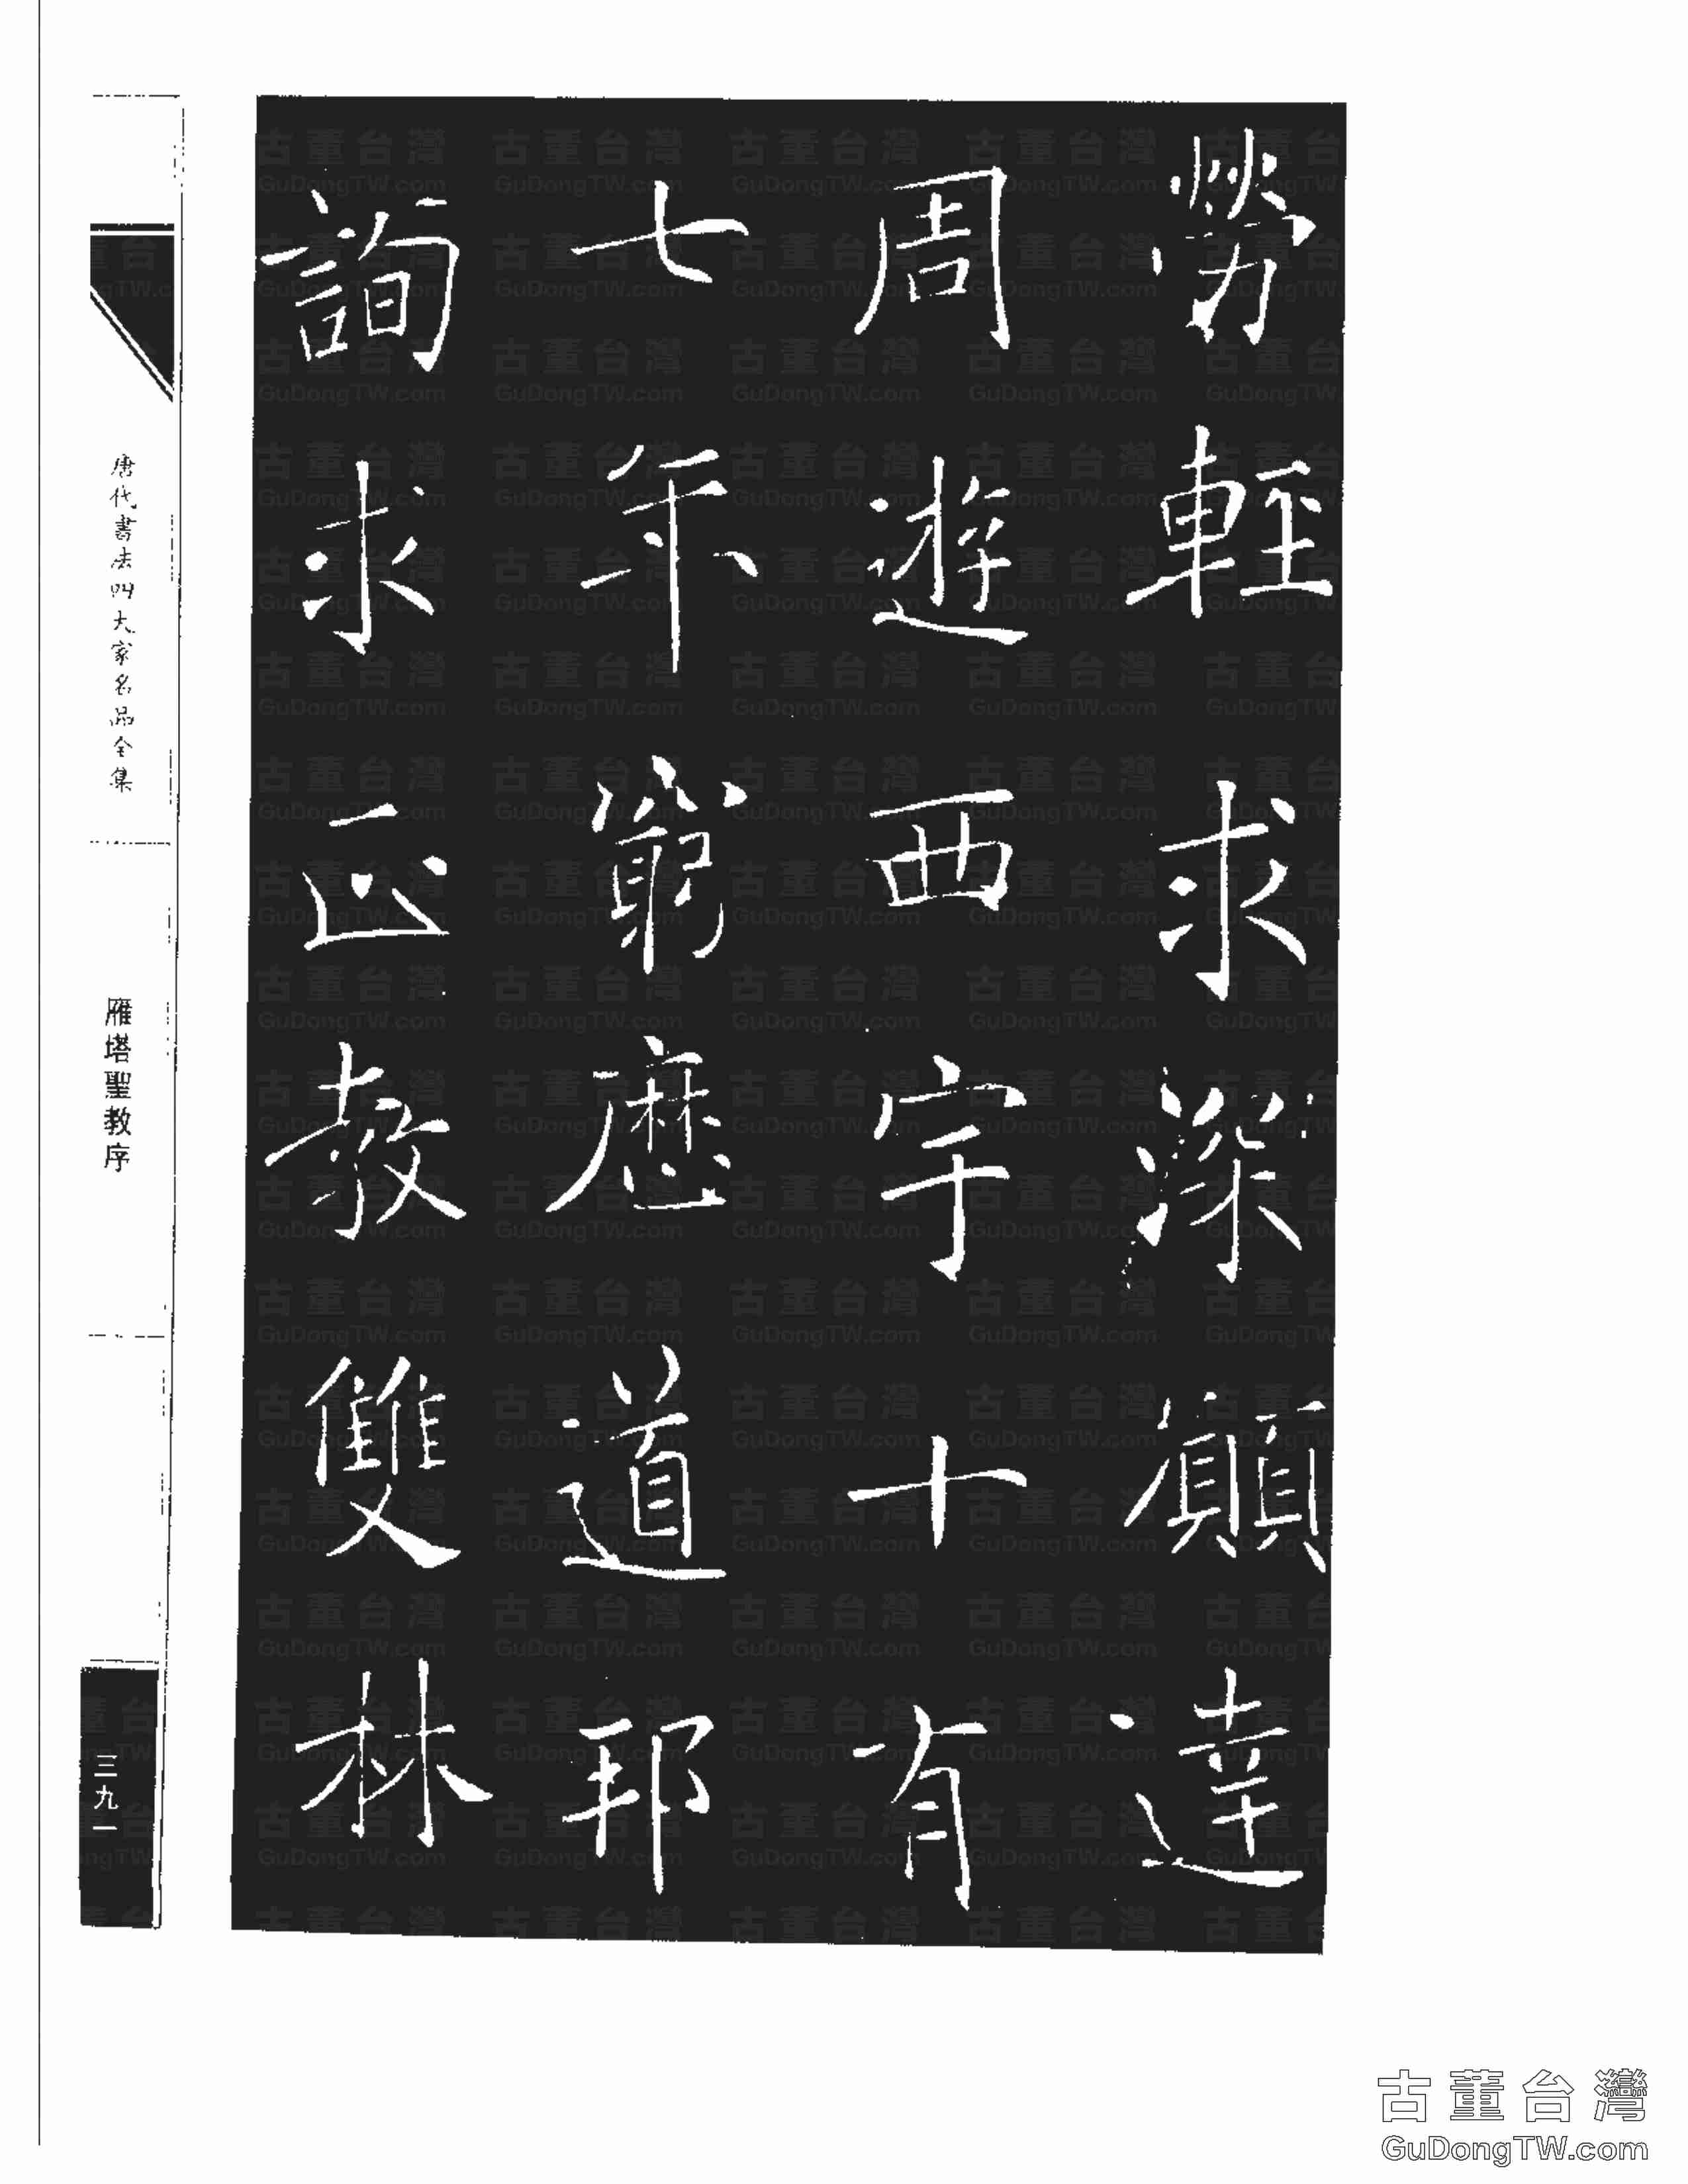 勞輕求深願達
周遊西宇十有
七年窮歷道邦
詢求正教雙林
唐代書法四大家名品全集
雁塔聖教序
三九一
古董台灣
GuDongTW.com